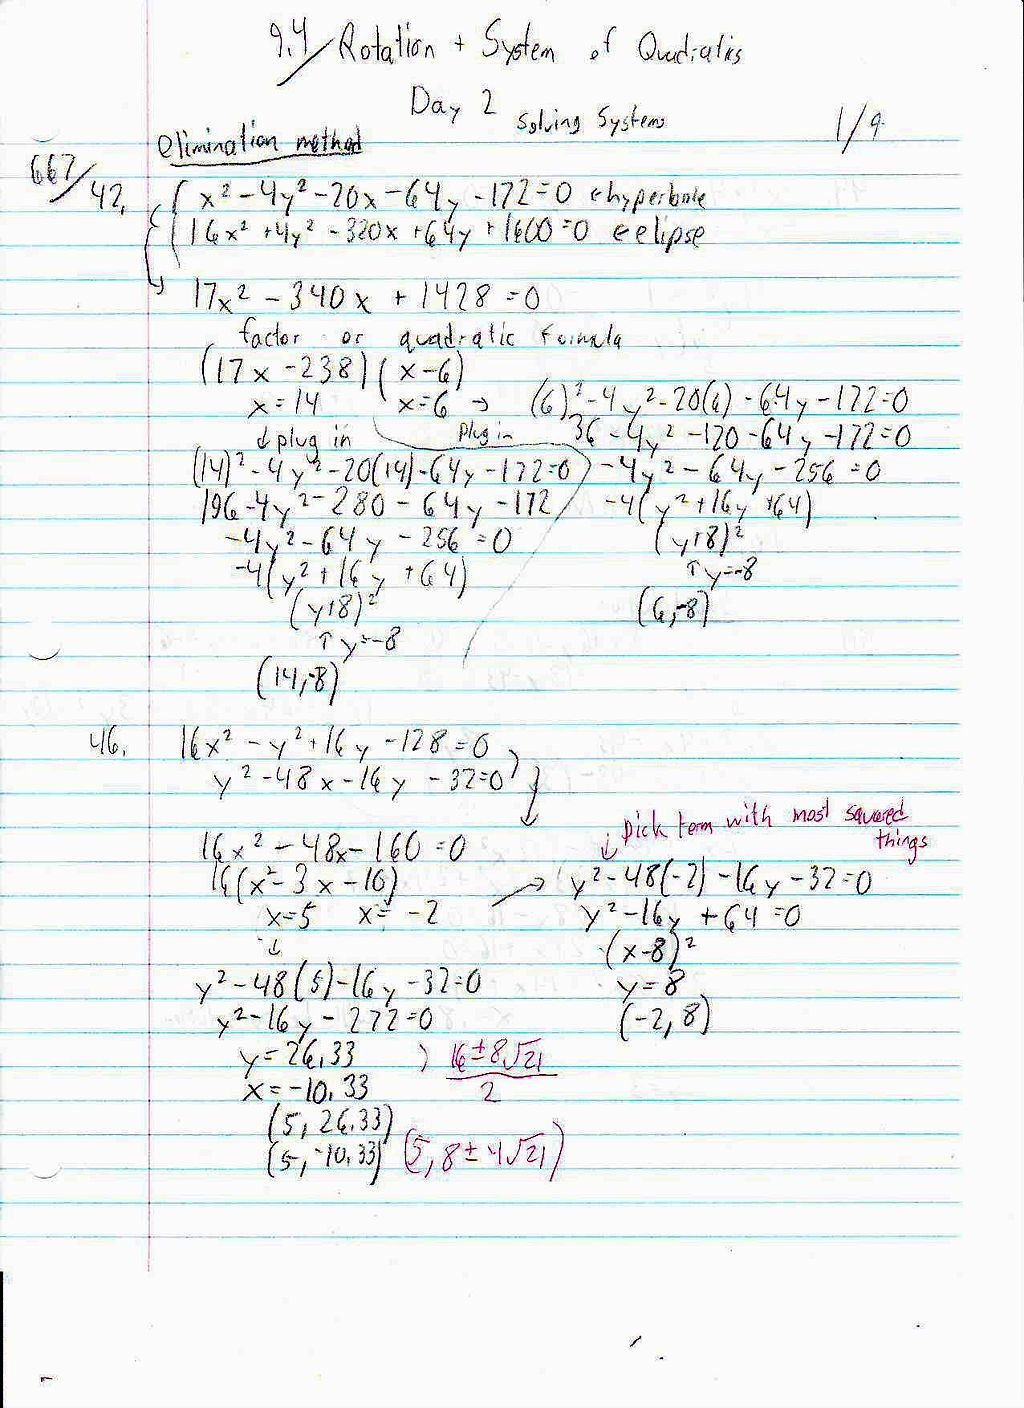 9.4/ Rotation + System of Quadratics
Day 2 Solving Systems 1/9
elimination method
667/42. x² - 4y² - 20x - 64y - 172 = 0 ← hyperbole
16x² + 4y² - 320x + 64y + 1600 = 0 ← elipse
17x² - 340x + 1428 = 0
factor or quadratic formula
(17x - 238)(x - 6)
x = 14 x = 6 → (6)² - 4y² - 20(6) - 64y - 172 = 0
↓ plug in plug in 36 - 4y² - 120 - 64y - 172 = 0
(14)² - 4y² - 20(14) - 64y - 172 = 0 -4y² - 64y - 256 = 0
196 - 4y² - 280 - 64y - 172 -4(y² + 16y + 64)
-4y² - 64y - 256 = 0 (y+8)²
-4(y² + 16y + 64) ↑ y = -8
(y+8)² (6, -8)
↑ y = -8
(14, -8)
46. 16x² - y² + 16y - 128 = 0
y² - 48x - 16y - 32 = 0
pick term with most squared
things
16x² - 48x - 160 = 0
16(x² - 3x - 10) → y² - 48(-2) - 16y - 32 = 0
x = 5 x = -2 y² - 16y + 64 = 0
↓ (x-8)²
y² - 48(5) - 16y - 32 = 0 y = 8
y² - 16y - 272 = 0 (-2, 8)
y = 26.33 ) 16 ± 8√21
x = -10.33 2
(5, 26.33)
(5, -10.33) (5, 8 ± 4√21)